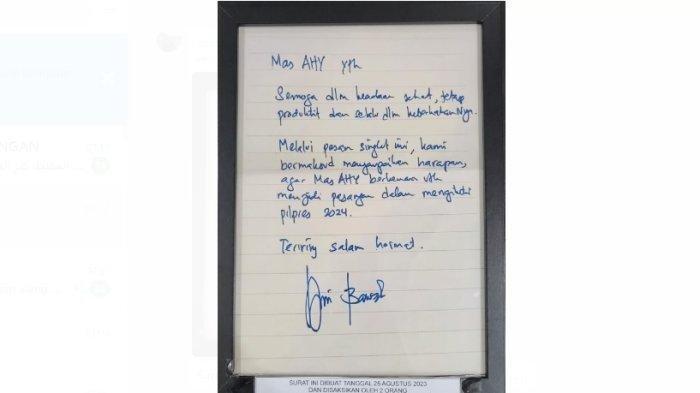 Mas AHY yth
Semoga dlm keadaan sehat, tetap
produktif dan selalu dlm keberkahanNya.
Melalui pesan singkat ini, kami
bermaksud menyampaikan harapan,
agar Mas AHY berkenan utk
menjadi pasangan dalam mengikuti
pilpres 2024.
Teriring salam hormat.
SURAT INI DIBUAT TANGGAL 25 AGUSTUS 2023
DAN DISAKSIKAN OLEH 2 ORANG